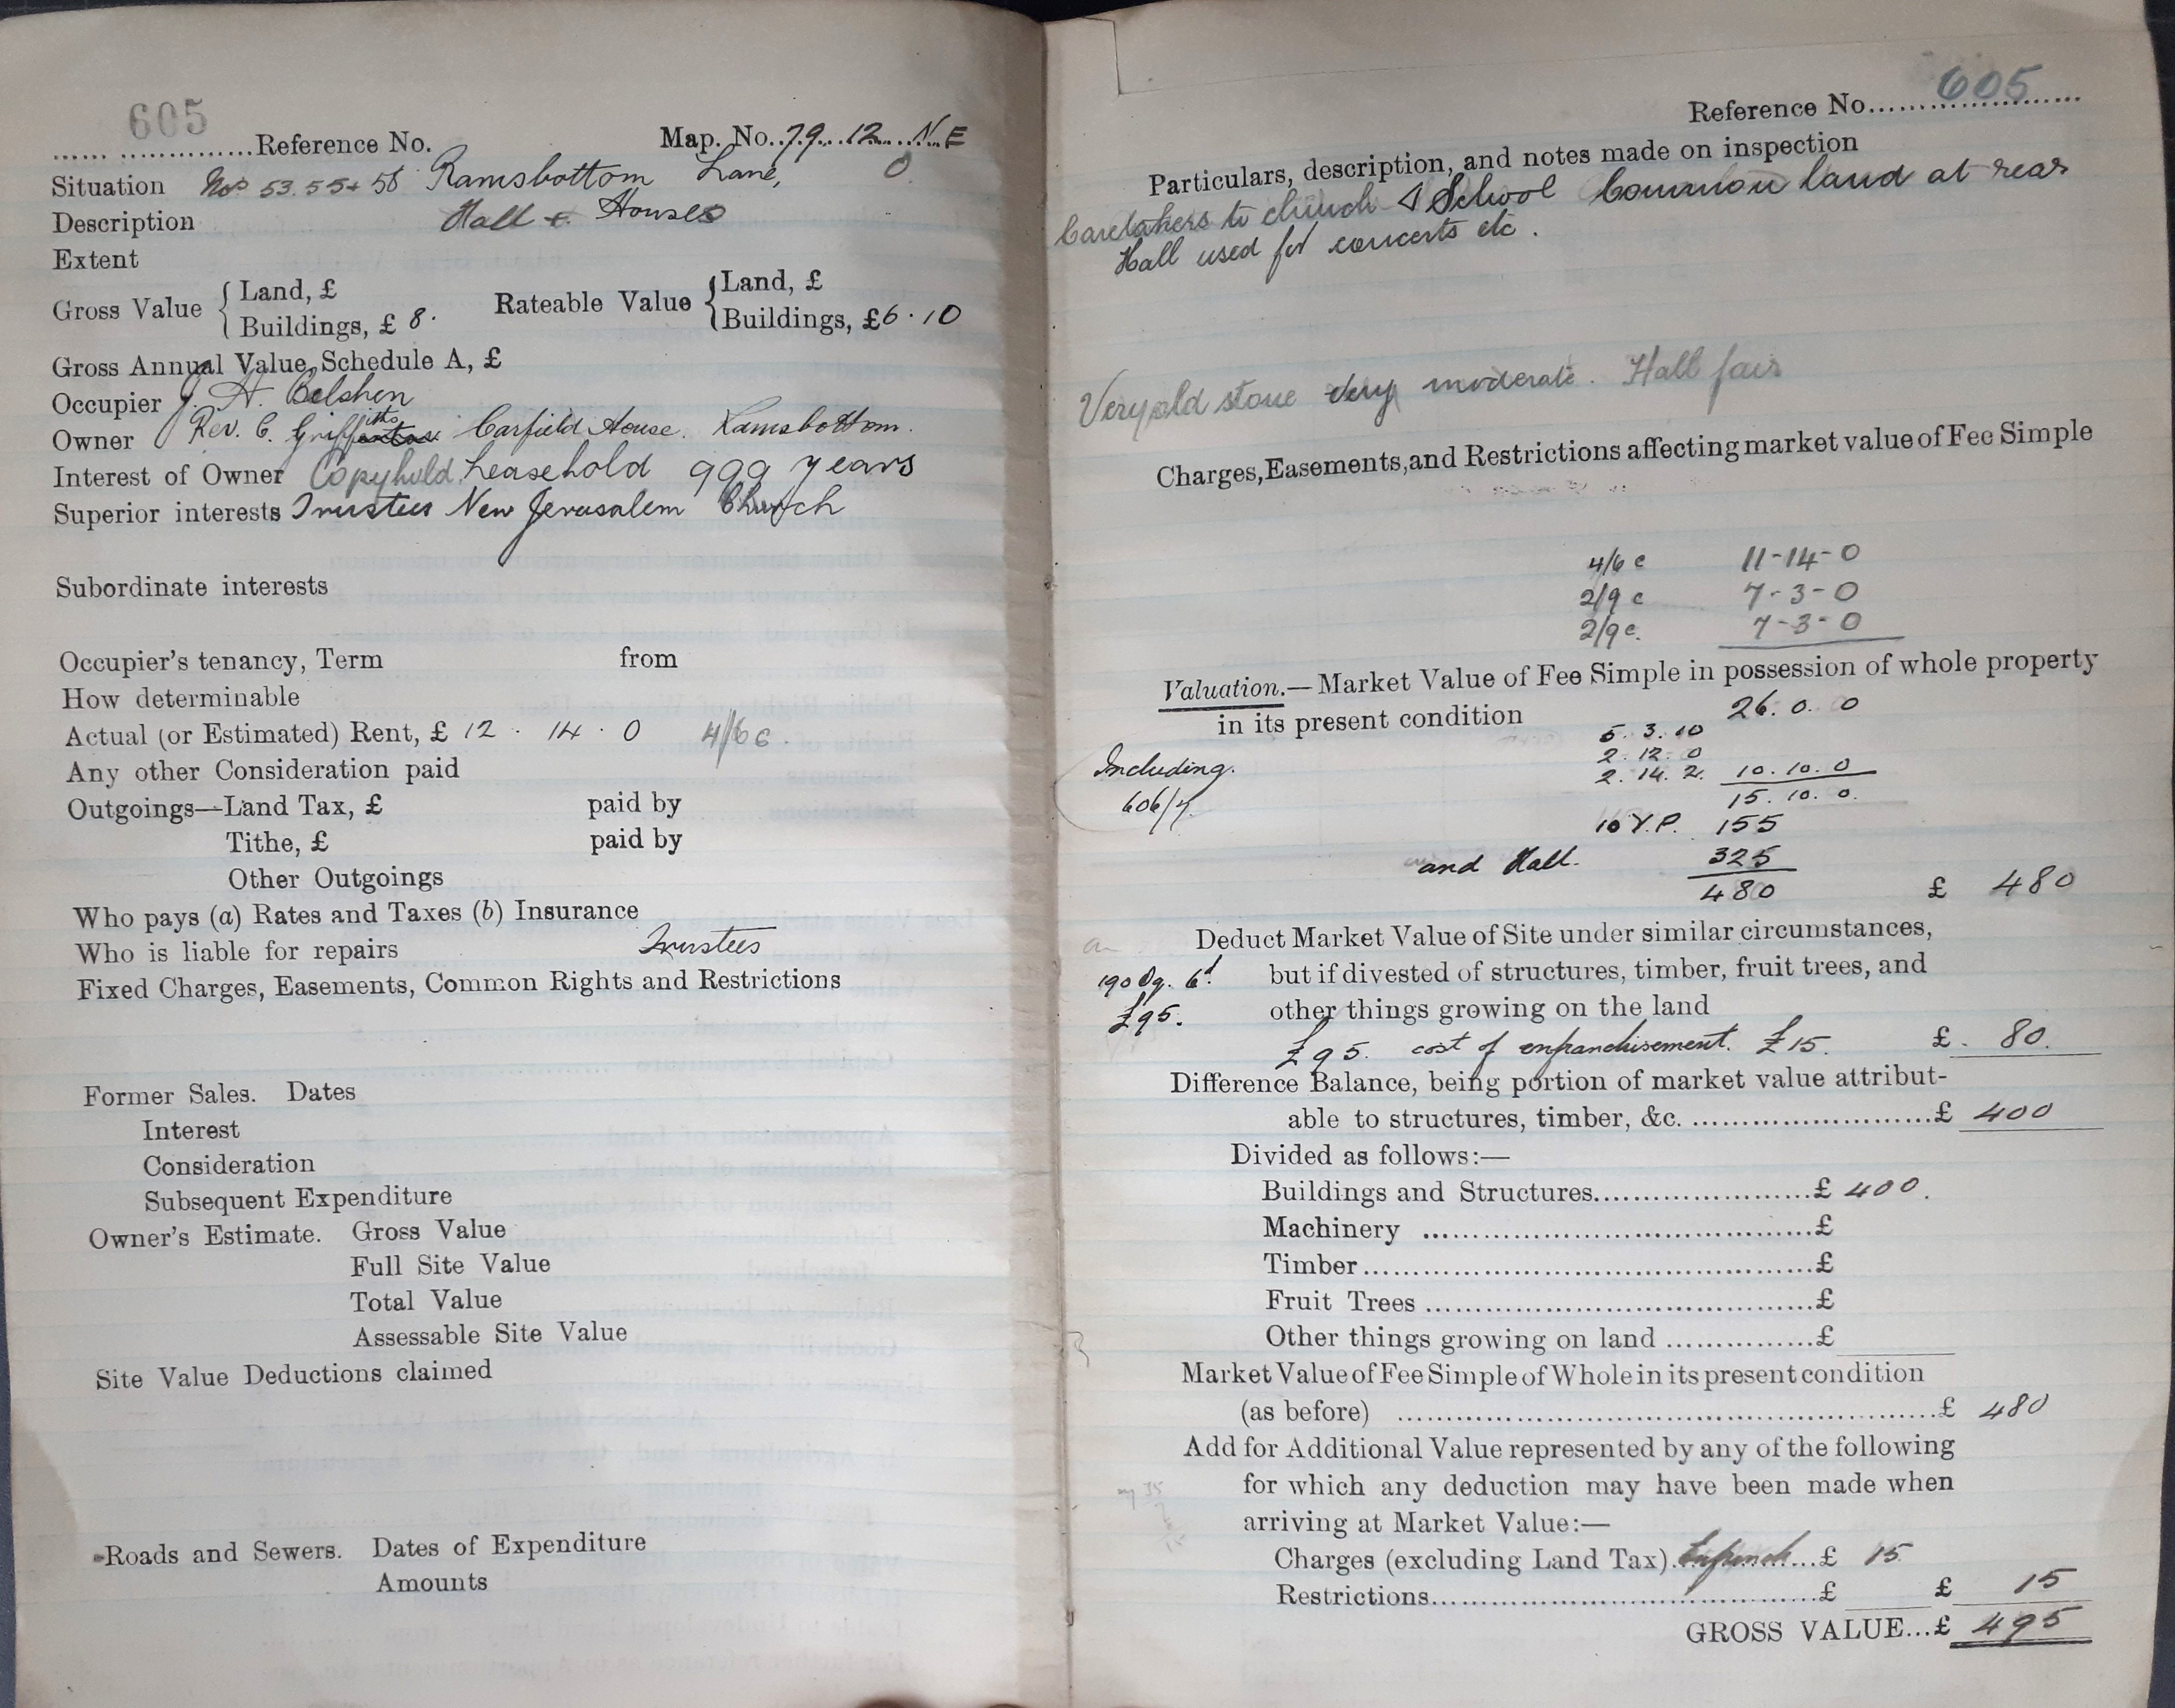 605
Reference No. Map. No. 79 12 N.E
Situation Nos 53. 55 + 58 Ramsbottom Lane, 0
Description Hall & Houses
Extent
Gross Value { Land, £ Rateable Value { Land, £
Buildings, £ 8. Buildings, £6.10
Gross Annual Value, Schedule A, £
Occupier J. H. Belshen
Owner Rev. C. Griffiths Carfield House. Ramsbottom.
Interest of Owner Copyhold Leasehold 999 years
Superior interests Trustees New Jerusalem Church
Subordinate interests
Occupier's tenancy, Term from
How determinable
Actual (or Estimated) Rent, £ 12 . 14 . 0 4/6 c.
Any other Consideration paid
Outgoings—Land Tax, £ paid by
Tithe, £ paid by
Other Outgoings
Who pays (a) Rates and Taxes (b) Insurance
Who is liable for repairs Trustees
Fixed Charges, Easements, Common Rights and Restrictions
Former Sales. Dates
Interest
Consideration
Subsequent Expenditure
Owner's Estimate. Gross Value
Full Site Value
Total Value
Assessable Site Value
Site Value Deductions claimed
Roads and Sewers. Dates of Expenditure
Amounts
Reference No. 605
Particulars, description, and notes made on inspection
Caretakers to church & School Common land at rear
Hall used for concerts etc.
Very old stone very moderate. Hall fair
Charges, Easements, and Restrictions affecting market value of Fee Simple
4/6 c 11-14-0
2/9 c 7-3-0
2/9 c. 7-3-0
Valuation.—Market Value of Fee Simple in possession of whole property
in its present condition 26. 0. 0
5. 3. 10
2. 12. 0
Including. 2. 14. 2. 10. 10. 0
606/7. 15. 10. 0.
10 Y.P. 155
and Hall. 325
480 £ 480
Deduct Market Value of Site under similar circumstances,
190 @ 6d but if divested of structures, timber, fruit trees, and
£95. other things growing on the land
£95. cost of enfranchisement. £15. £ 80.
Difference Balance, being portion of market value attribut-
able to structures, timber, &c. £ 400
Divided as follows:—
Buildings and Structures £ 400.
Machinery £
Timber £
Fruit Trees £
Other things growing on land £
Market Value of Fee Simple of Whole in its present condition
(as before) £ 480
Add for Additional Value represented by any of the following
for which any deduction may have been made when
arriving at Market Value:—
Charges (excluding Land Tax) £ 15
Restrictions £ £ 15
GROSS VALUE...£ 495